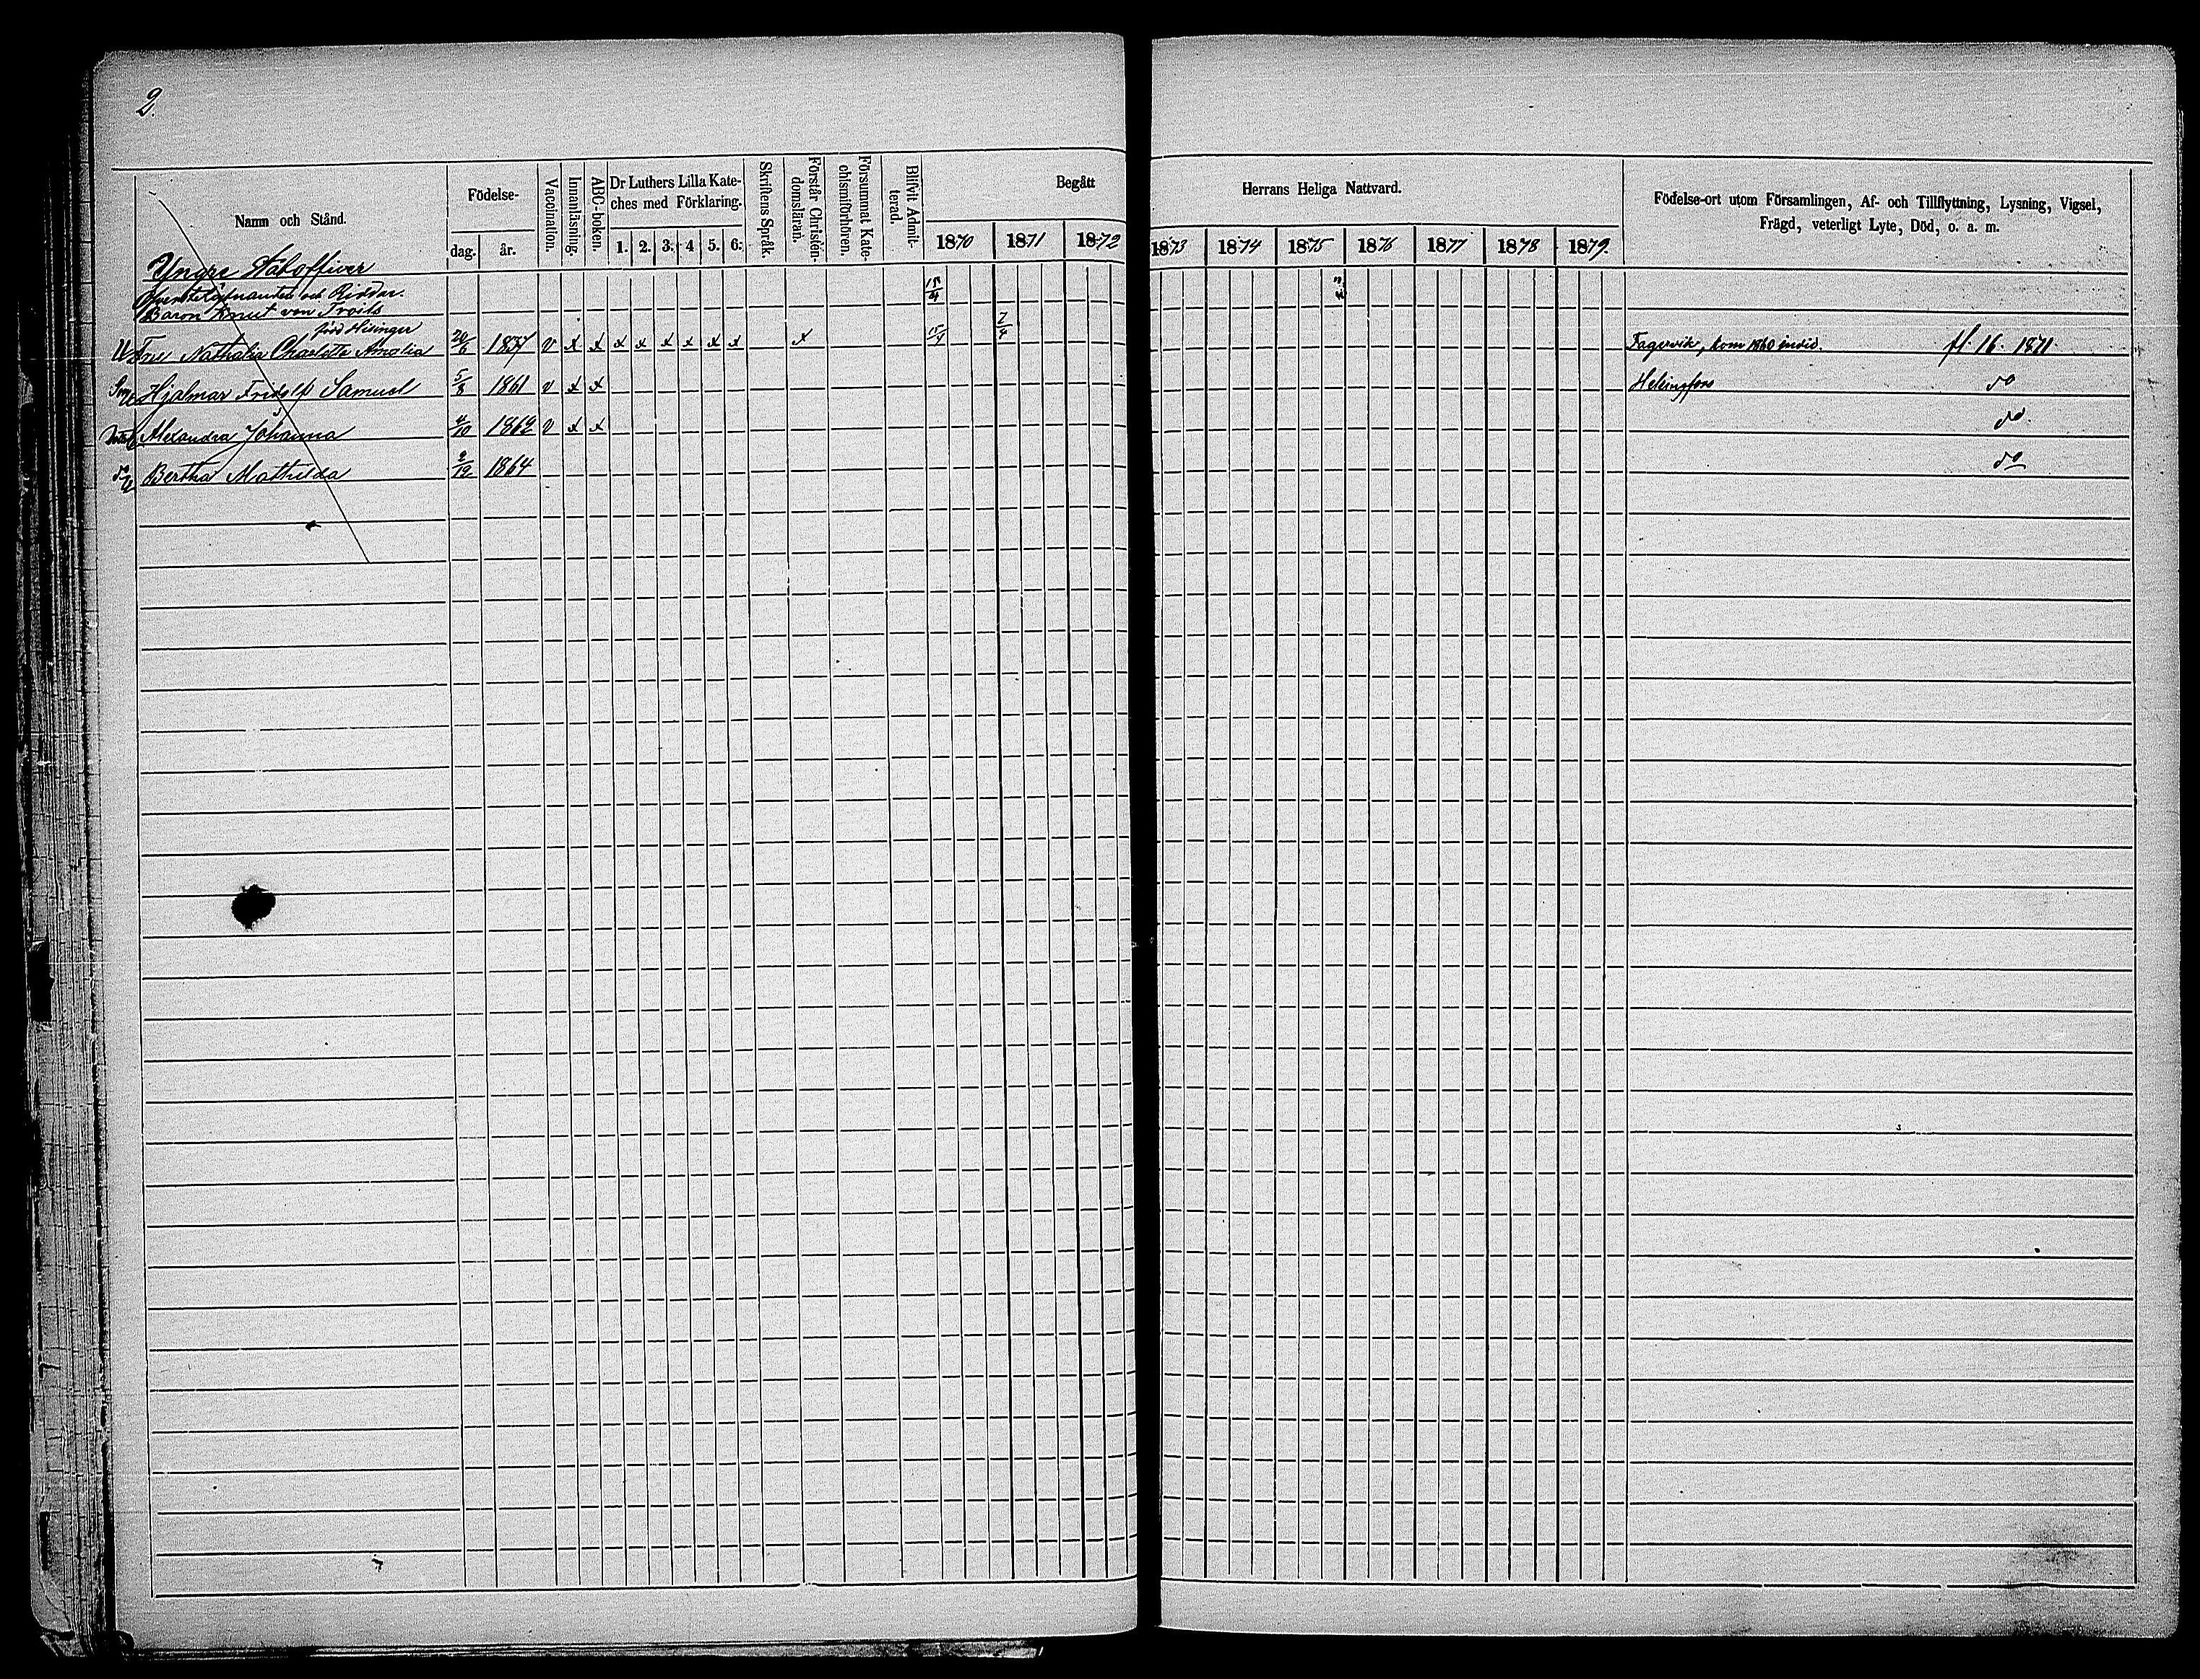 2.
Namn och Stånd.
Födelse-
dag.
år.
Vaccination.
Innanläsning.
ABC-boken.
Dr Luthers Lilla Kate-
ches med Förklaring.
1. 2. 3. 4 5. 6.
Skriftens Språk.
Förstår Christen-
domsläran.
Försummat Kate-
chismiförhören.
Blifvit Admit-
terad.
Begått
Herrans Heliga Nattvard.
1870 1871 1872 1873 1874 1875 1876 1877 1878 1879.
Födelse-ort utom Församlingen, Af- och Tillflyttning, Lysning, Vigsel,
Frägd, veterligt Lyte, Död, o. a. m.
Yngre Stabofficer
Öfverstelöjtnanten och Riddar. 15/4
Baron Knut von Troils
född Hisinger
Fru Nathalia Charlotta Amalia 20/6 1837 v x x x x x x x x x 15/4 7/4 Fagervik, kom 1860 fl. 16. 1871
Son Hjalmar Fridolf Samuel 5/8 1861 v x x Helsingfors do
Alexandra Johanna 4/10 1862 v x x do.
Bertha Mathilda 2/12 1864 do